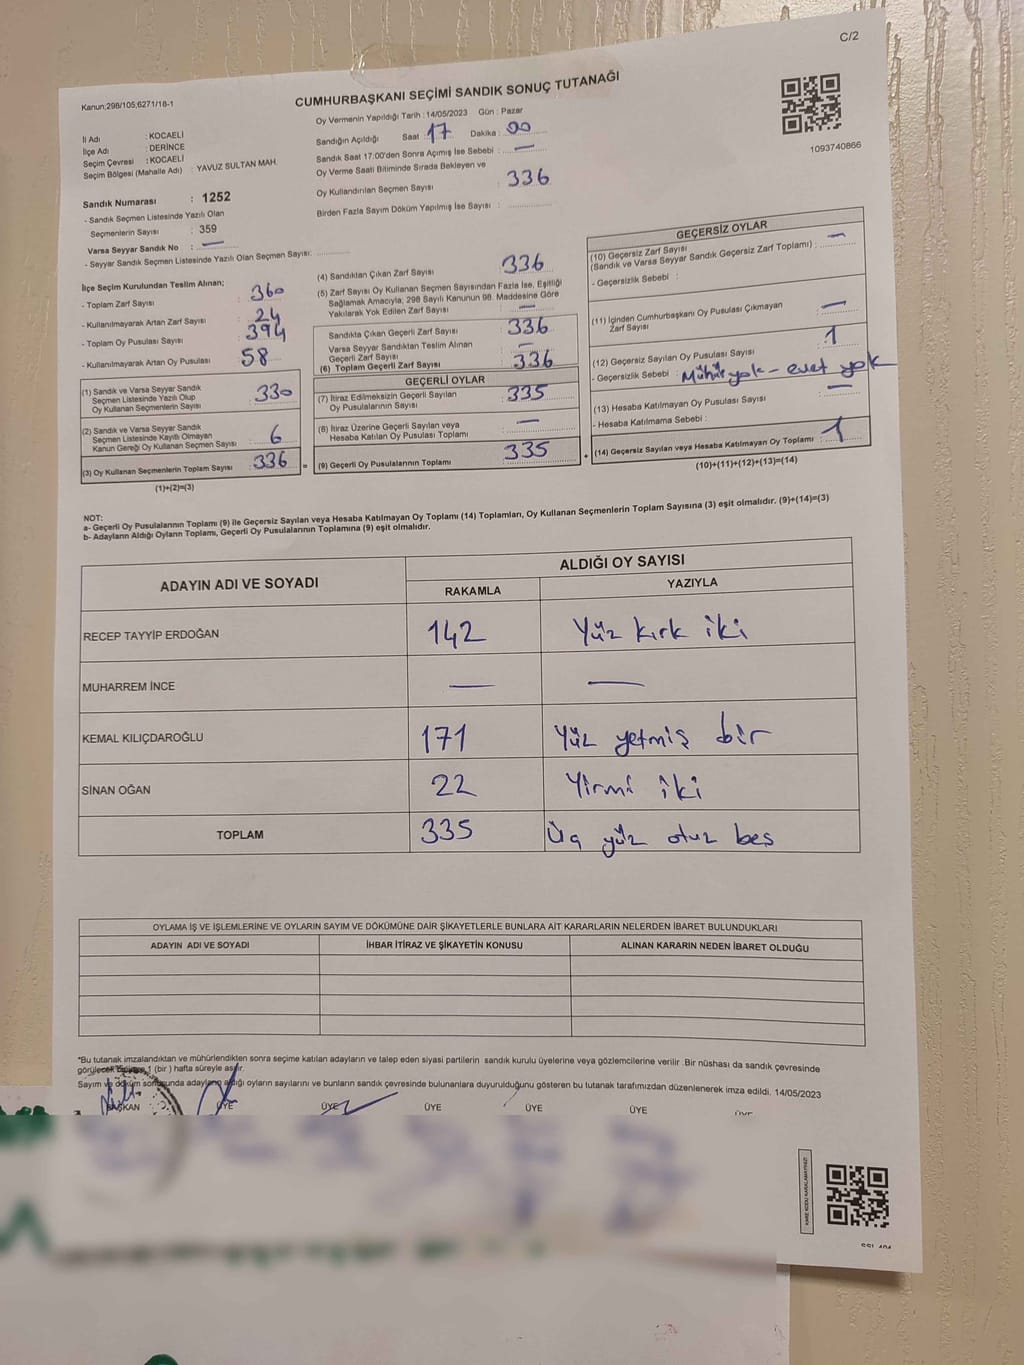 C/2
Kanun:298/105,6271/18-1
CUMHURBAŞKANI SEÇİMİ SANDIK SONUÇ TUTANAĞI
1093740866
İl Adı : KOCAELİ
İlçe Adı : DERİNCE
Seçim Çevresi : KOCAELİ
Seçim Bölgesi (Mahalle Adı) : YAVUZ SULTAN MAH.
Sandık Numarası : 1252
- Sandık Seçmen Listesinde Yazılı Olan
Seçmenlerin Sayısı : 359
Varsa Seyyar Sandık No : —
- Seyyar Sandık Seçmen Listesinde Yazılı Olan Seçmen Sayısı:
Oy Vermenin Yapıldığı Tarih : 14/05/2023 Gün : Pazar
Sandığın Açıldığı Saat 17 Dakika : 00
Sandık Saat 17:00'den Sonra Açımış İse Sebebi : —
Oy Verme Saati Bitiminde Sırada Bekleyen ve
Oy Kullandırılan Seçmen Sayısı : 336
Birden Fazla Sayım Döküm Yapılmış İse Sayısı :
İlçe Seçim Kurulundan Teslim Alınan;
- Toplam Zarf Sayısı : 360
- Kullanılmayarak Artan Zarf Sayısı : 24
- Toplam Oy Pusulası Sayısı : 394
- Kullanılmayarak Artan Oy Pusulası : 58
(1) Sandık ve Varsa Seyyar Sandık
Seçmen Listesinde Yazılı Olup
Oy Kullanan Seçmenlerin Sayısı : 330
(2) Sandık ve Varsa Seyyar Sandık
Seçmen Listesinde Kayıtlı Olmayan
Kanun Gereği Oy Kullanan Seçmen Sayısı : 6
(3) Oy Kullanan Seçmenlerin Toplam Sayısı : 336
(1)+(2)=(3)
(4) Sandıktan Çıkan Zarf Sayısı : 336
(5) Zarf Sayısı Oy Kullanan Seçmen Sayısından Fazla İse, Eşitliği
Sağlamak Amacıyla, 298 Sayılı Kanunun 98. Maddesine Göre
Yakılarak Yok Edilen Zarf Sayısı : —
Sandıkta Çıkan Geçerli Zarf Sayısı : 336
Varsa Seyyar Sandıktan Teslim Alınan
Geçerli Zarf Sayısı : —
(6) Toplam Geçerli Zarf Sayısı : 336
GEÇERLİ OYLAR
(7) İtiraz Edilmeksizin Geçerli Sayılan
Oy Pusulalarının Sayısı : 335
(8) İtiraz Üzerine Geçerli Sayılan veya
Hesaba Katılan Oy Pusulası Toplamı : —
(9) Geçerli Oy Pusulalarının Toplamı : 335
GEÇERSİZ OYLAR
(10) Geçersiz Zarf Sayısı
(Sandık ve Varsa Seyyar Sandık Geçersiz Zarf Toplamı) : —
- Geçersizlik Sebebi :
(11) İçinden Cumhurbaşkanı Oy Pusulası Çıkmayan
Zarf Sayısı : —
(12) Geçersiz Sayılan Oy Pusulası Sayısı : 1
- Geçersizlik Sebebi : Mühür yok - evet yok
(13) Hesaba Katılmayan Oy Pusulası Sayısı : —
- Hesaba Katılmama Sebebi :
(14) Geçersiz Sayılan veya Hesaba Katılmayan Oy Toplamı : 1
(10)+(11)+(12)+(13)=(14)
NOT:
a- Geçerli Oy Pusulalarının Toplamı (9) ile Geçersiz Sayılan veya Hesaba Katılmayan Oy Toplamı (14) Toplamları, Oy Kullanan Seçmenlerin Toplam Sayısına (3) eşit olmalıdır. (9)+(14)=(3)
b- Adayların Aldığı Oyların Toplamı, Geçerli Oy Pusulalarının Toplamına (9) eşit olmalıdır.
ADAYIN ADI VE SOYADI ALDIĞI OY SAYISI
RAKAMLA YAZIYLA
RECEP TAYYİP ERDOĞAN 142 Yüz kırk iki
MUHARREM İNCE — —
KEMAL KILIÇDAROĞLU 171 Yüz yetmiş bir
SİNAN OĞAN 22 Yirmi iki
TOPLAM 335 Üç yüz otuz beş
OYLAMA İŞ VE İŞLEMLERİNE VE OYLARIN SAYIM VE DÖKÜMÜNE DAİR ŞİKAYETLERLE BUNLARA AİT KARARLARIN NELERDEN İBARET BULUNDUKLARI
ADAYIN ADI VE SOYADI İHBAR İTİRAZ VE ŞİKAYETİN KONUSU ALINAN KARARIN NEDEN İBARET OLDUĞU
*Bu tutanak imzalandıktan ve mühürlendikten sonra seçime katılan adayların ve talep eden siyasi partilerin sandık kurulu üyelerine veya gözlemcilerine verilir .Bir nüshası da sandık çevresinde
görülecek 1 (bir ) hafta süreyle asılır.
Sayım ve döküm sonucunda adayların aldığı oyların sayılarını ve bunların sandık çevresinde bulunanlara duyurulduğunu gösteren bu tutanak tarafımızdan düzenlenerek imza edildi. 14/05/2023
BAŞKAN ÜYE ÜYE ÜYE ÜYE ÜYE ÜYE